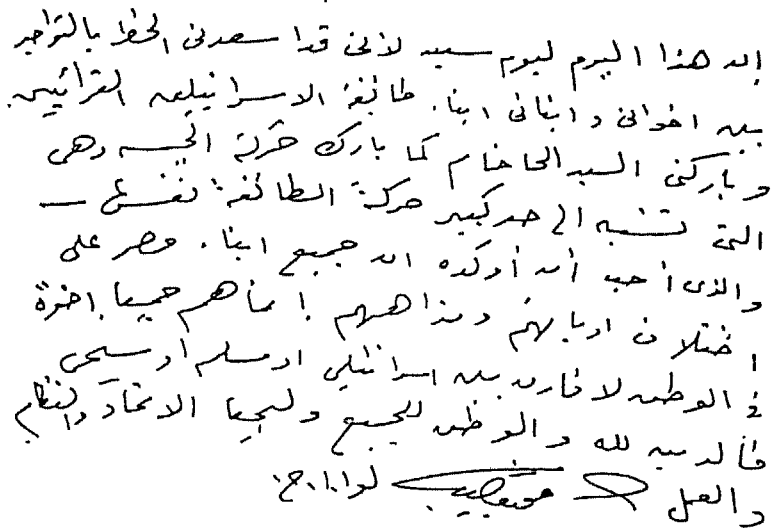 إن هذا اليوم ليوم سعيد لأنى قد اسعدنى الحظ بالتواجد
بين اخوانى وابنائى ابناء طائفة الاسرائيليين القرائيين
وباركنى السيد الحاخام كما بارك حركة الجيش وهى
التى تشبه الى حد كبير حركة الطائفة نفسها —
والذى أحب أن أؤكده ان جميع ابناء مصر على
اختلاف اديانهم ومذاهبهم إنما هم جميعا إخوة
فى الوطن لا فارق بين اسرائيلى او مسلم أو مسيحى
فالدين لله والوطن للجميع وليحيا الاتحاد والنظام
والعمل محمد نجيب لواء ا. ح.